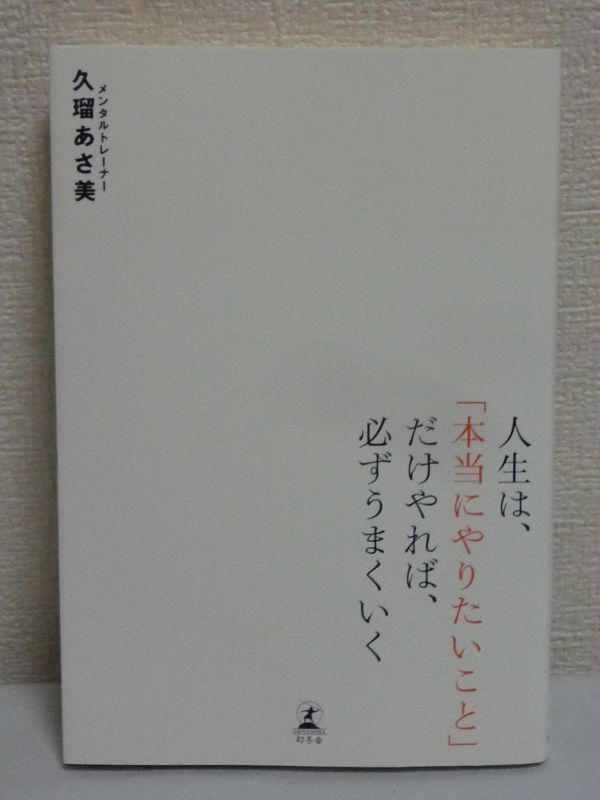 人生は、
「本当にやりたいこと」
だけやれば、
必ずうまくいく
メンタルトレーナー
久瑠あさ美
GENTOSHA
幻冬舎